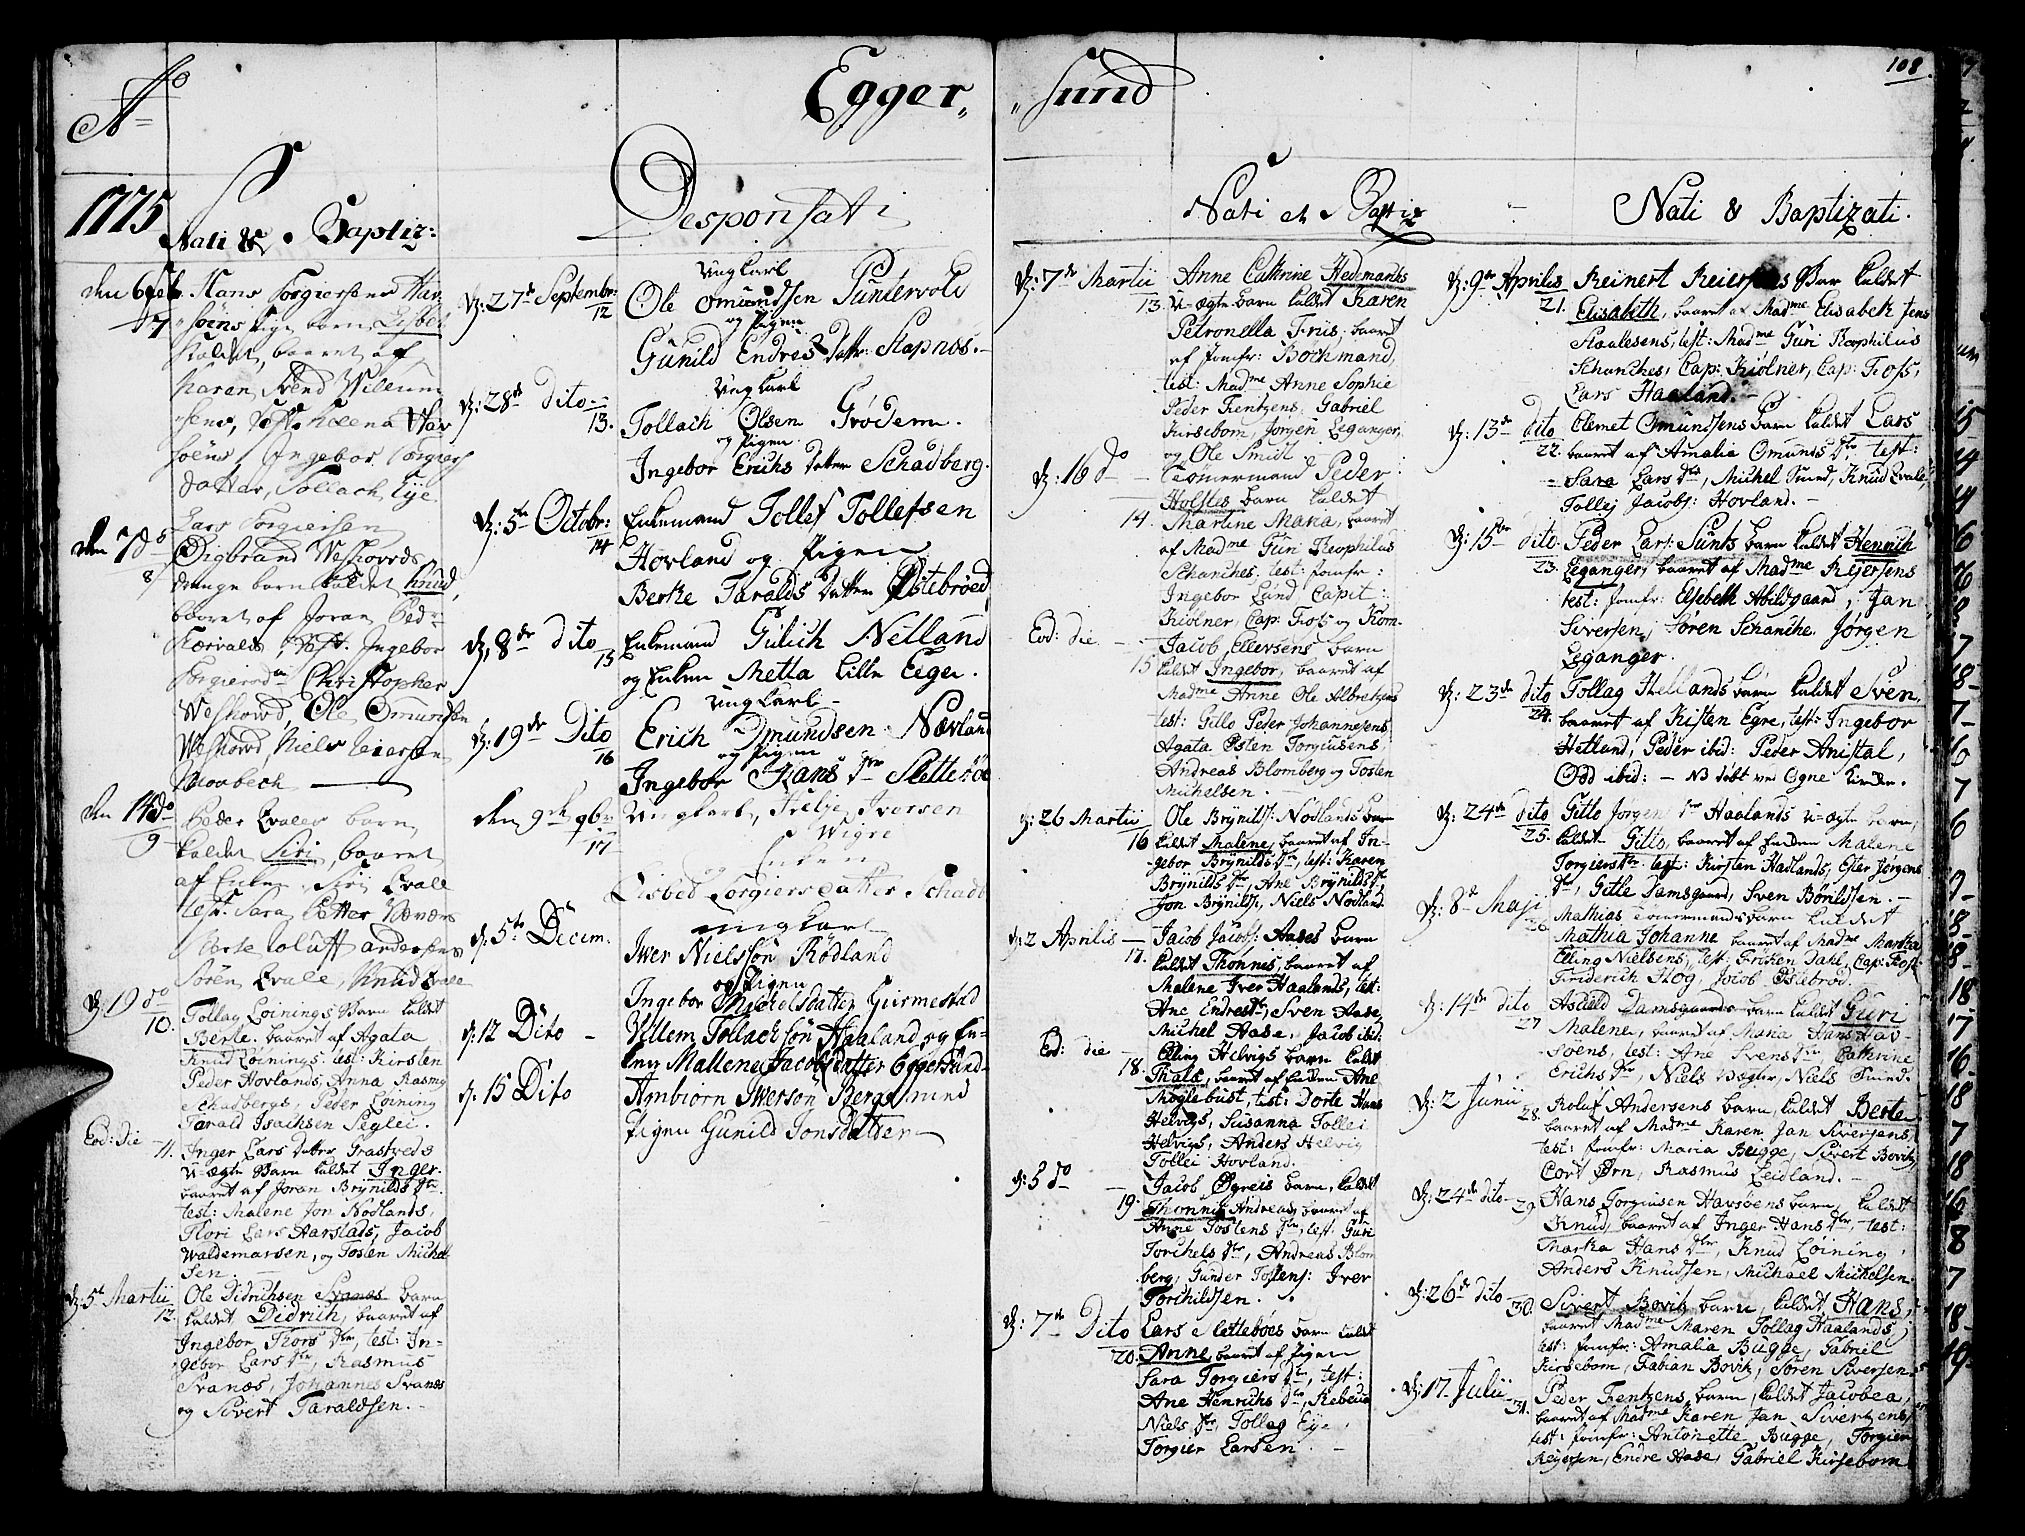 Ao
Egger„
„sund
108
1775
Nati & Baptiz:
Desponsati
Nati et Baptiz
Nati & Baptizati.
den 6 Feb
7
Hans Torgiersens Hav
søins Pige barn, Lisbet
kaldet, baaret af
Karen, Svend Willum
sens, Test. Helena Hav
søens, Ingebor Torgiers
datter, Tollach Eye
Lars Torgiersen
den 7 do
8
Sigbrand Weshovds
drenge barn kaldet Knud,
baaret af Joran Ped
Test. Ingebor
Christopher
Weshovd, Ole Omundsen
Weshovd, Niels
den 14 do
9
Peder Evales barn,
kaldet Siri, baaret
af Enken Siri Evale
test. Sara Petter
Berte Roluff andersens
Søren Evale, Knud Evale
d: 19 do
10.
Tollag Loinings Barn kaldet
Berte. baaret af Agata
Knud Loinings. test: Kirsten
Peder Hovlands, Anna Rasmus
Schadbergs, Peder Loining
Tarald Isachsen Seglei.
Eod: die
11.
Inger Lars datter Grastveds
u-ægte Barn kaldet Inger
baaret af Joran Brynilds dtr.
test: Malene Jon Nodlands,
Flori Lars Aarstads, Jacob
Waldemarsen, og Tosten Michel
sen.
d: 5t Martii
12.
Ole Didrichsen Svanes barn
kaldet Didrich, baaret af
Ingebor Thors dtr, test: In-
gebor Lars dtr, Rasmus
Svanæs, Johannes Svanæs
og Sivert Taraldsen.
d: 27de Septembr:
12
Ungkarl
Ole Omundsen Puntervold
og Pigen
Gunild Endres datter Stapnes.
d: 28de dito
13.
Ungkarl
Tollach Olsen Grødem.
og Pigen
Ingebor Erichs datter Schadberg.
d: 5te Octobr:
14
Enkemand Tollef Tollefsen
Hovland og Pigen
Berte Taralds datter Østebrøed
d. 8de dito
15
Enkemand Gulich Netland
og Enken Metta Lille Eeger.
d: 19de Dito
16
Ungkarl
Erich Omundsen Nævland
og Pigen
Ingebor Hans dtr Slettebøe
den 9de 9br
17
Ungkarl, Helje Iversen
Wigre
Enken
Lisbed Torgiersdatter Schadb
d. 5te Decem.
ungkarl
Iwer Nielssøn Rødland
og Pigen
Ingebor Michelsdatter Girmestad
d. 12 Dito
Villem Tollachsøn Haaland og En-
ken Mallene Jacobsdatter Eggersund
d. 15 Dito
Ambiørn Iwersøn Bergs med
Pigen Gunild Jonsdatter
d: 7de Martii
13.
Anne Cathrine Hedemands
u-ægte barn kaldet Karen
Petronella Friis, baaret
af Jomfr: Bochmand,
test: Madme Anne Sophie
Peder Fentzens, Gabriel
Kirsebom, Jørgen Leganger,
og Ole Smidt
d: 16 do
14.
Tømermand Peder
Holstes barn kaldet
Martine Maria, baaret
af Madme Guri Theophilus
Schanches. test: Jomfr:
Ingebor Lund, Capit:
Kiolner, Cap: Foss og Kom.
Eod: die
15
Jacob Ellevsens barn
kaldet Ingebor, baaret af
Madme Anne Ole Albretsens
test: Gitlo Peder Johannesens,
Agata Osten Torgiusens,
Andreas Blomberg og Tosten
Michelsen.
d: 26 Martii
16
Ole Brynilds: Nodlands barn
kaldet Malene, baaret af In-
gebor Brynilds dtr, test: Karen
Brynilds dtr, Ane Brynilds dtr
Jon Brynilds, Niels Nodland.
d: 2 Aprilis
17.
Jacob Jacobs: Aases barn
kaldet Thonnes, baaret af
Malene Iver Haalands, test:
Ane Endres dtr, Sven Aase,
Michel Aase, Jacob ibid:
Eod: die
18.
Elling Helvigs barn kaldet
Thale, baaret af Enken Ane
Møglebust, test: Dorte Hans
Helvigs, Susanna Tollei
Helvigs, Anders Helvig
Tollei Hovland.
d: 5 do
19.
Jacob Øgreis barn, kaldet
Thonnis Andreas, baaret af
Anne Tostens dtr, test: Guri
Torchels dtr, Andreas Blom
berg, Gunder Tostens: Iver
Torchildsen.
d: 7de Dito
20.
Lars Sletteboes barn kaldet
Anne, baaret af Pigen
Sara Torgiers dtr, test:
Ane Henrichs dtr, Rebecca
Niels dtr, Tollag Eye,
Torgier Larsen.
d: 9de Aprilis
21.
Reinert Reiersens Barn kaldet
Elisabeth, baaret af Madme Elisabeth Jens
Staalesens, test: Madme Guri Theophilus
Schanches, Cap: Kiølner, Cap: Foss,
Lars Haaland.
d: 13de dito
22.
Clemet Omundsens Barn kaldet Lars
baaret af Amalia Omunds dtr test:
Sara Lars dtr, Michel Smed, Knud Evale,
Tollej Jacobs: Hovland.
d: 15de dito.
23.
Peder Lars: Sunts barn kaldet Henrich
Leganger, baaret af Madme Reyersens
test: Jomfr: Elsebeth Abildgaard, Jan
Siversen, Soren Schanche. Jørgen
Leganger.
d: 23de dito
24.
Tollag Hetlands barn kaldet Sven,
baaret af Kisten Egre, test: Ingebor
Hetland, Peder ibid: Peder Anistal,
Odd ibid: - NB døbt ve Ogne Kirke.
d: 24de dito
25.
Gitlo Jorgens dtr Haalands u-ægte barn,
kaldet Gitlo, baaret af Enken Malene
Torgiers dtr test: Kirsten Hadlands, Ester Jørgens
dtr, Gitle Damsgaard, Sven Bonildsen.
d: 8de Maji
26.
Mathias Tomermands barn kaldet
Mathia Johanne baaret af Madme Martha
Elling Nielsens, test: Friken Dahl, Cap: Foss
Friderich Hog, Jacob Ostebrod.
d: 14de dito
27
Aslald Damsgaards barn kaldet Guri
Malene, baaret af Maria Hans Hav-
søens, test: Ane Svens dtr, Cathrine
Erichs dtr, Niels Bøgler, Niels Smed.
d: 2 Junii
28.
Roluf Andersens barn, kaldet Berte
baaret af Madme Karen Jan Sivertsens,
test: Jomfr: Maria Bugge, Sivert Bovitz,
Cort Ørn, Rasmus Leidland.
d: 24de dito
29
Hans Torgiusen Havsøens barn, kaldet
Knud, baaret af Inger Hans dtr, test:
Martha Hans dtr, Knud Loining,
Anders Knudsen, Michael Michelsen.
d: 26de dito
30.
Sivert Bovitz barn, kaldet Hans,
baaret Madme Maren Tollag Haalands,
test: Jomfr: Amalia Bugge, Gabriel
Kirsebom, Fabian Bovitz, Søren Siversen.
d: 17 Julii
31.
Peder Fentzens barn, kaldet Jacobea,
baaret af Madme Karen Jan Sivertsens,
test: Jomfr: Antonette Bugge, Torgier
Reyersen, Endre Aase, Gabriel Kirsebom